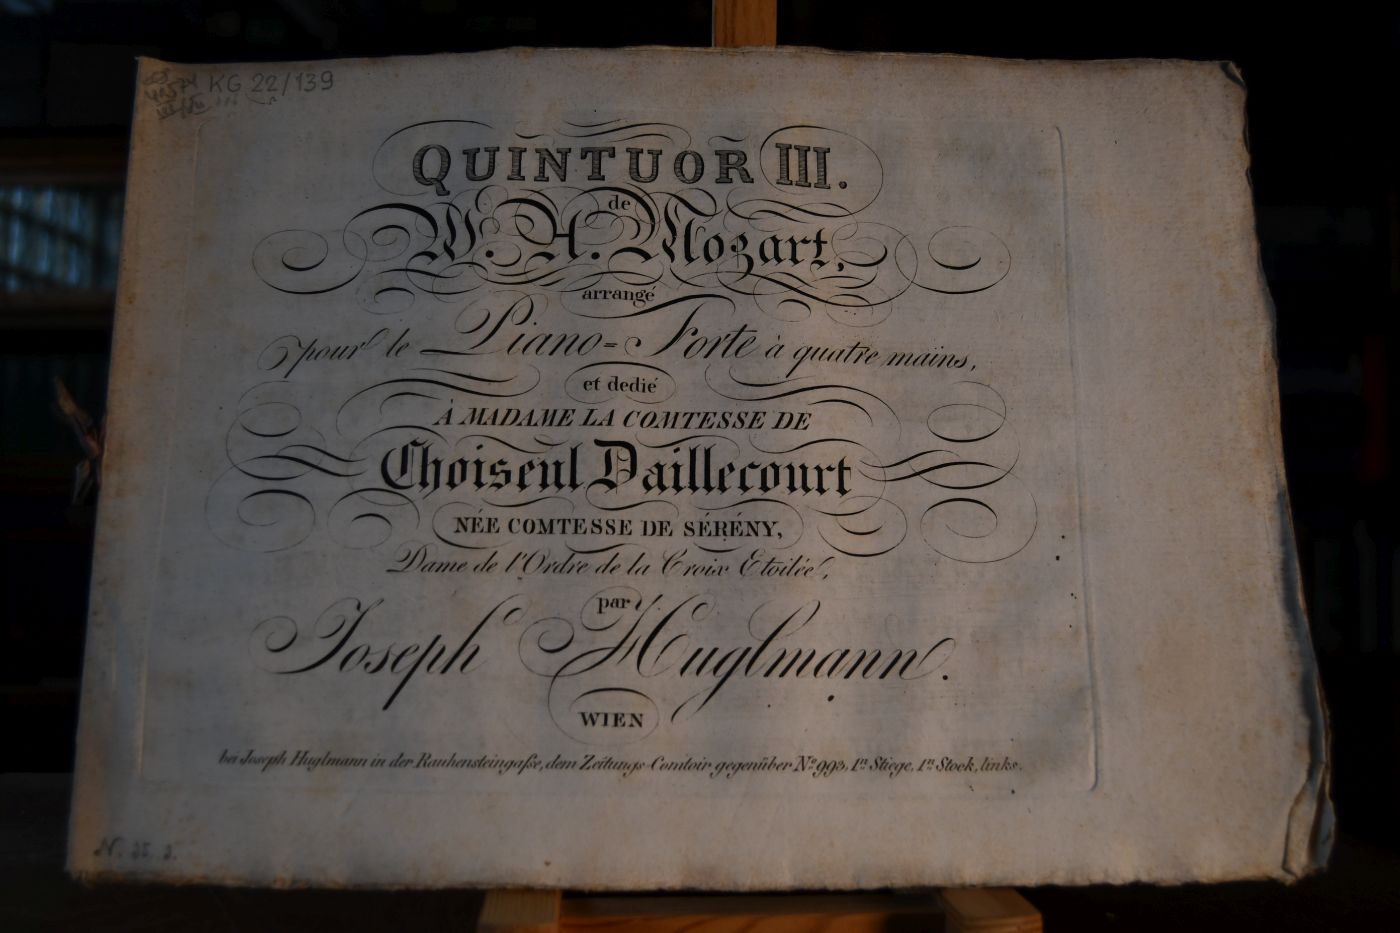 KG 22/139
QUINTUOR III.
de
W. A. Mozart,
arrangé
pour le Piano=Forte à quatre mains,
et dedié
À MADAME LA COMTESSE DE
Choiseul Daillecourt
NÉE COMTESSE DE SÉRÉNY,
Dame de l'Ordre de la Croix Etoilée,
par
Joseph Huglmann.
WIEN
bei Joseph Huglmann in der Rauhensteingaſse, dem Zeitungs-Comtoir gegenüber No. 993, 1n. Stiege, 1n. Stock, links.
N. 35. 3.